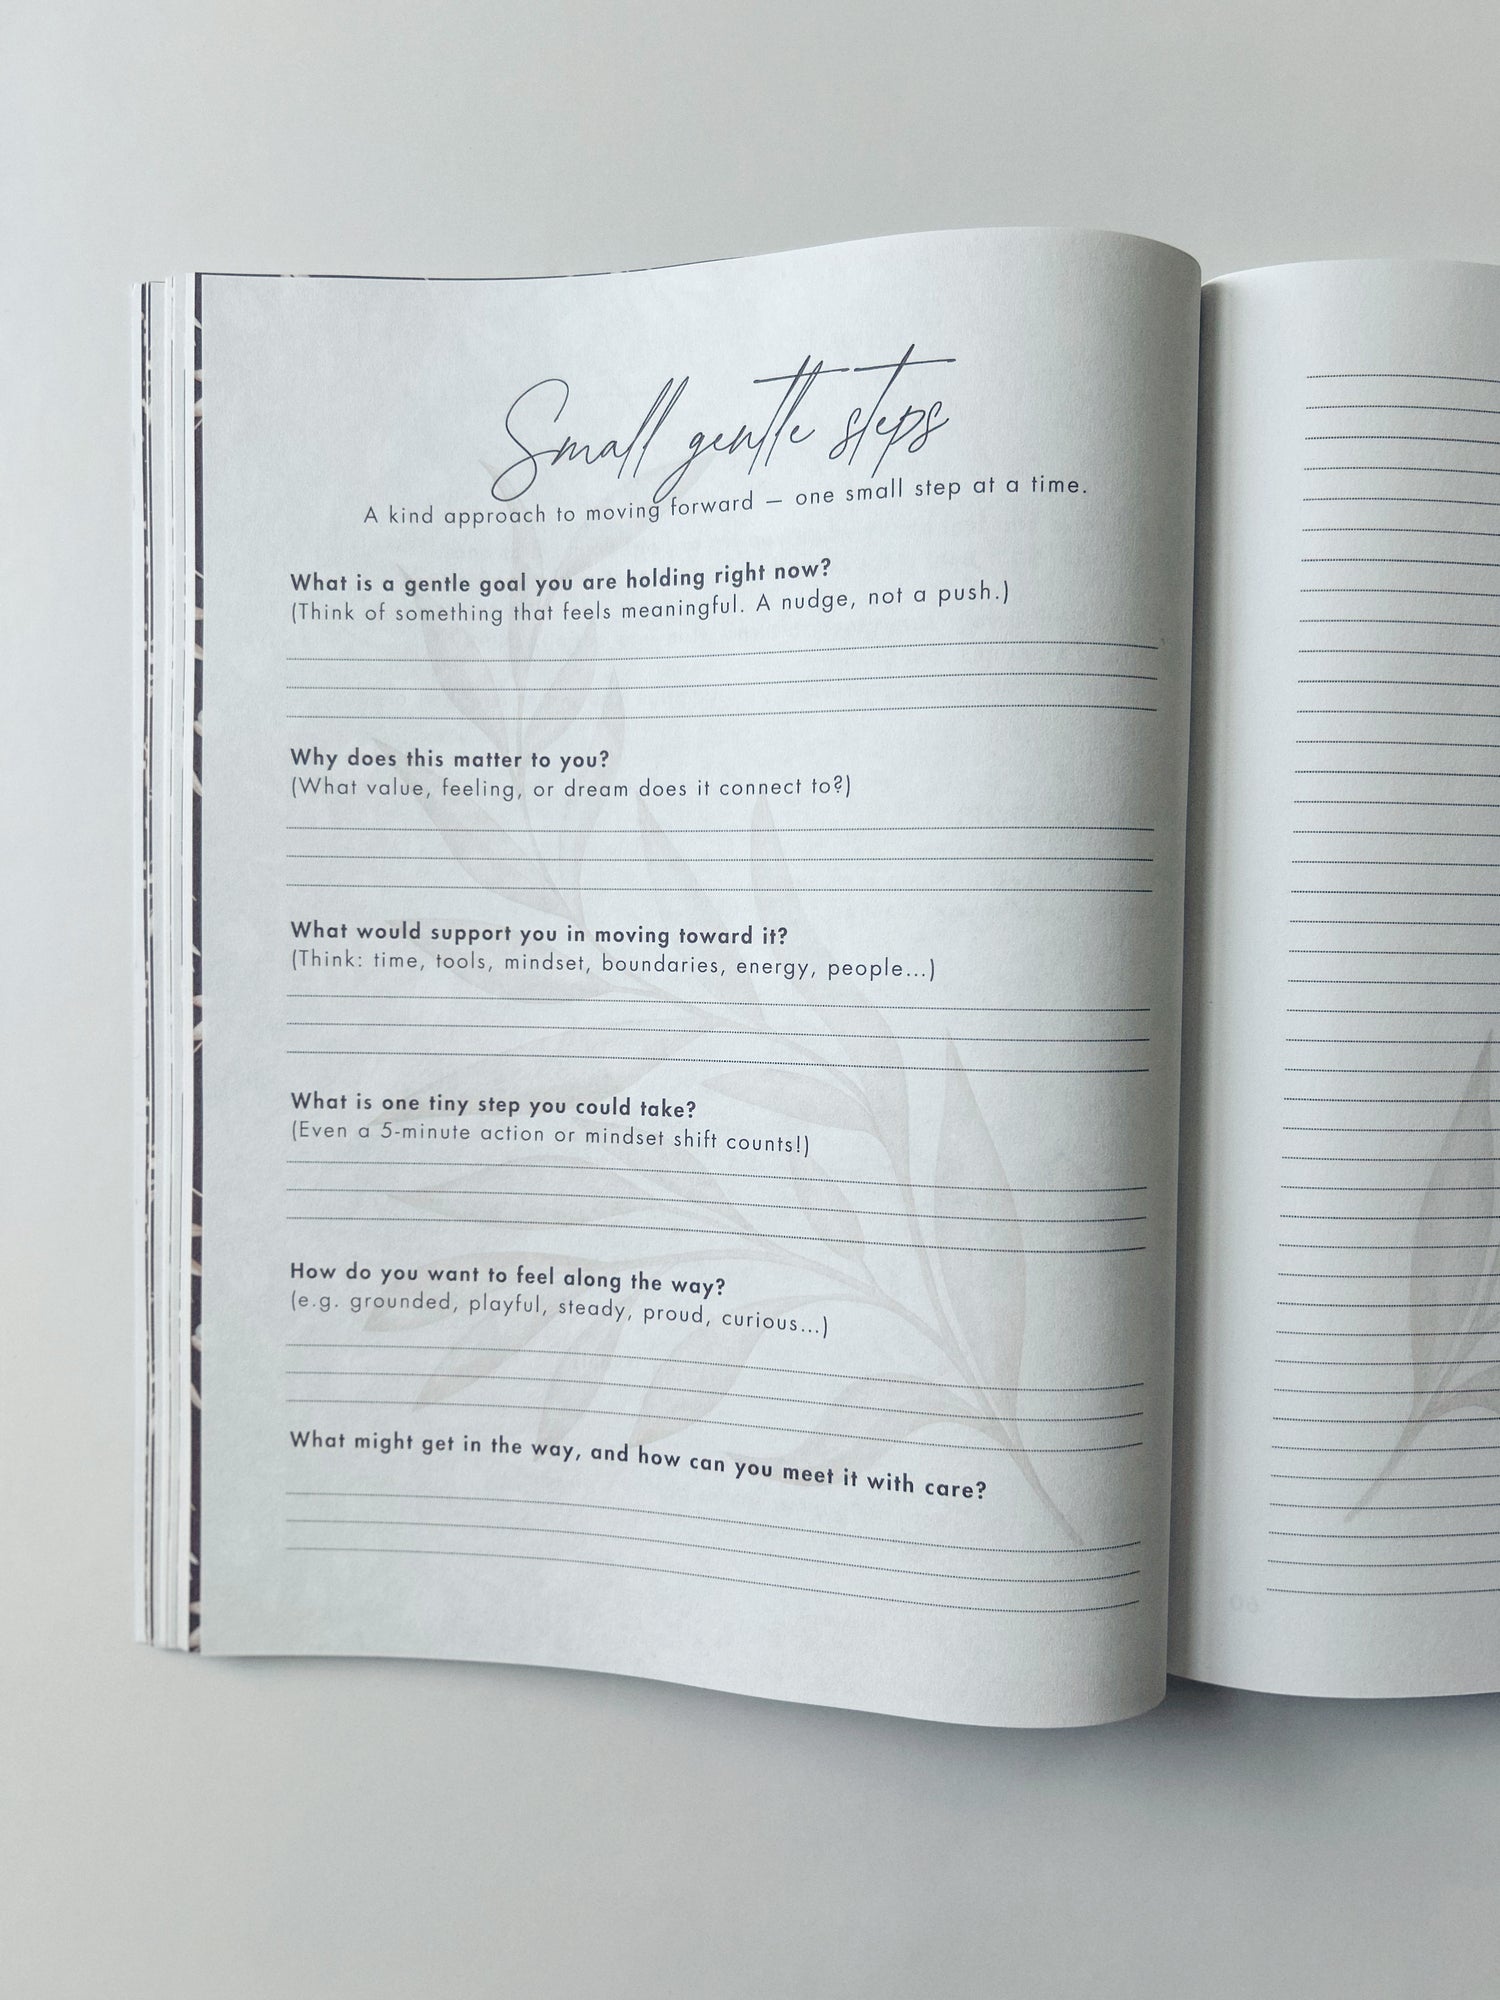 Small gentle steps
A kind approach to moving forward — one small step at a time.
What is a gentle goal you are holding right now?
(Think of something that feels meaningful. A nudge, not a push.)
Why does this matter to you?
(What value, feeling, or dream does it connect to?)
What would support you in moving toward it?
(Think: time, tools, mindset, boundaries, energy, people...)
What is one tiny step you could take?
(Even a 5-minute action or mindset shift counts!)
How do you want to feel along the way?
(e.g. grounded, playful, steady, proud, curious...)
What might get in the way, and how can you meet it with care?